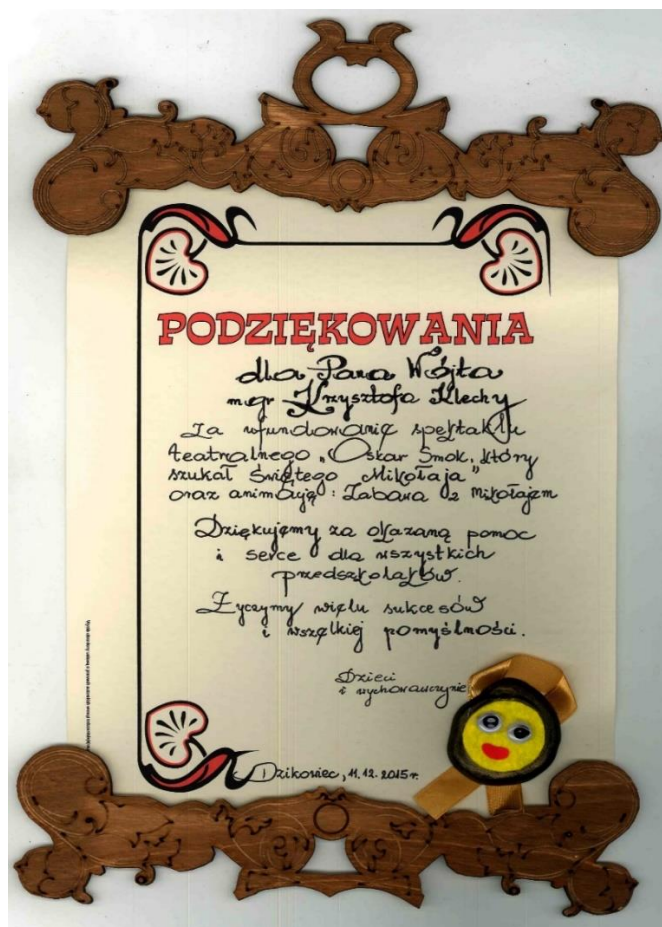 PODZIĘKOWANIA
dla Pana Wójta
mgr Krzysztofa Klechy
Za ufundowanie spektaklu
teatralnego „Oskar Smok, który
szukał Świętego Mikołaja"
oraz animację: Zabawa z Mikołajem
Dziękujemy za okazaną pomoc
i serce dla wszystkich
przedszkolaków.
Życzymy wielu sukcesów
i wszelkiej pomyślności.
Dzieci
i wychowawczynie
Dzikowiec, 11.12.2015r.